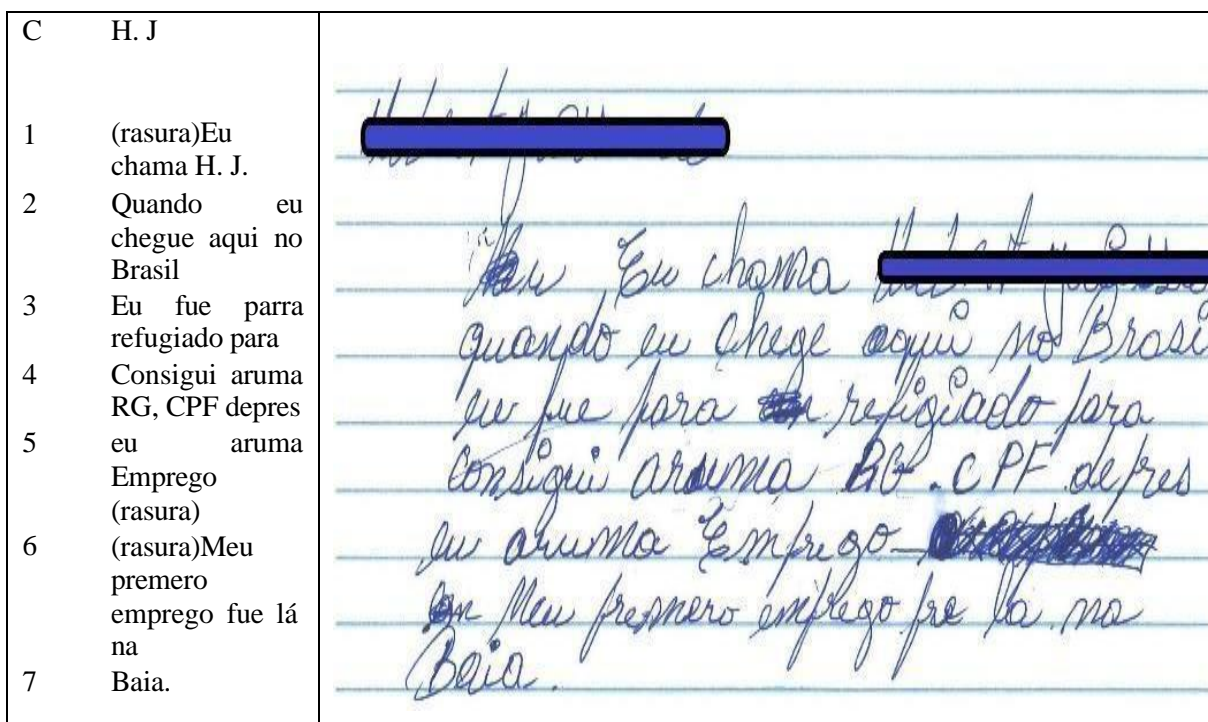 C H. J
1 (rasura)Eu
chama H. J.
2 Quando eu
chegue aqui no
Brasil
3 Eu fue parra
refugiado para
4 Consigui aruma
RG, CPF depres
5 eu aruma
Emprego
(rasura)
6 (rasura)Meu
premero
emprego fue lá
na
7 Baia.
Eu chama
quando eu chege aqui no Brasi
eu fue para refigiado para
consigui aruma RG. CPF. depres
eu aruma Emprego
Meu premero emprego fue la na
Baia.